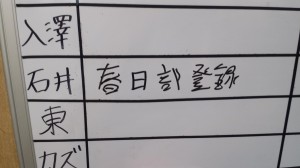 入澤
石井 春日部登録
東
カズ